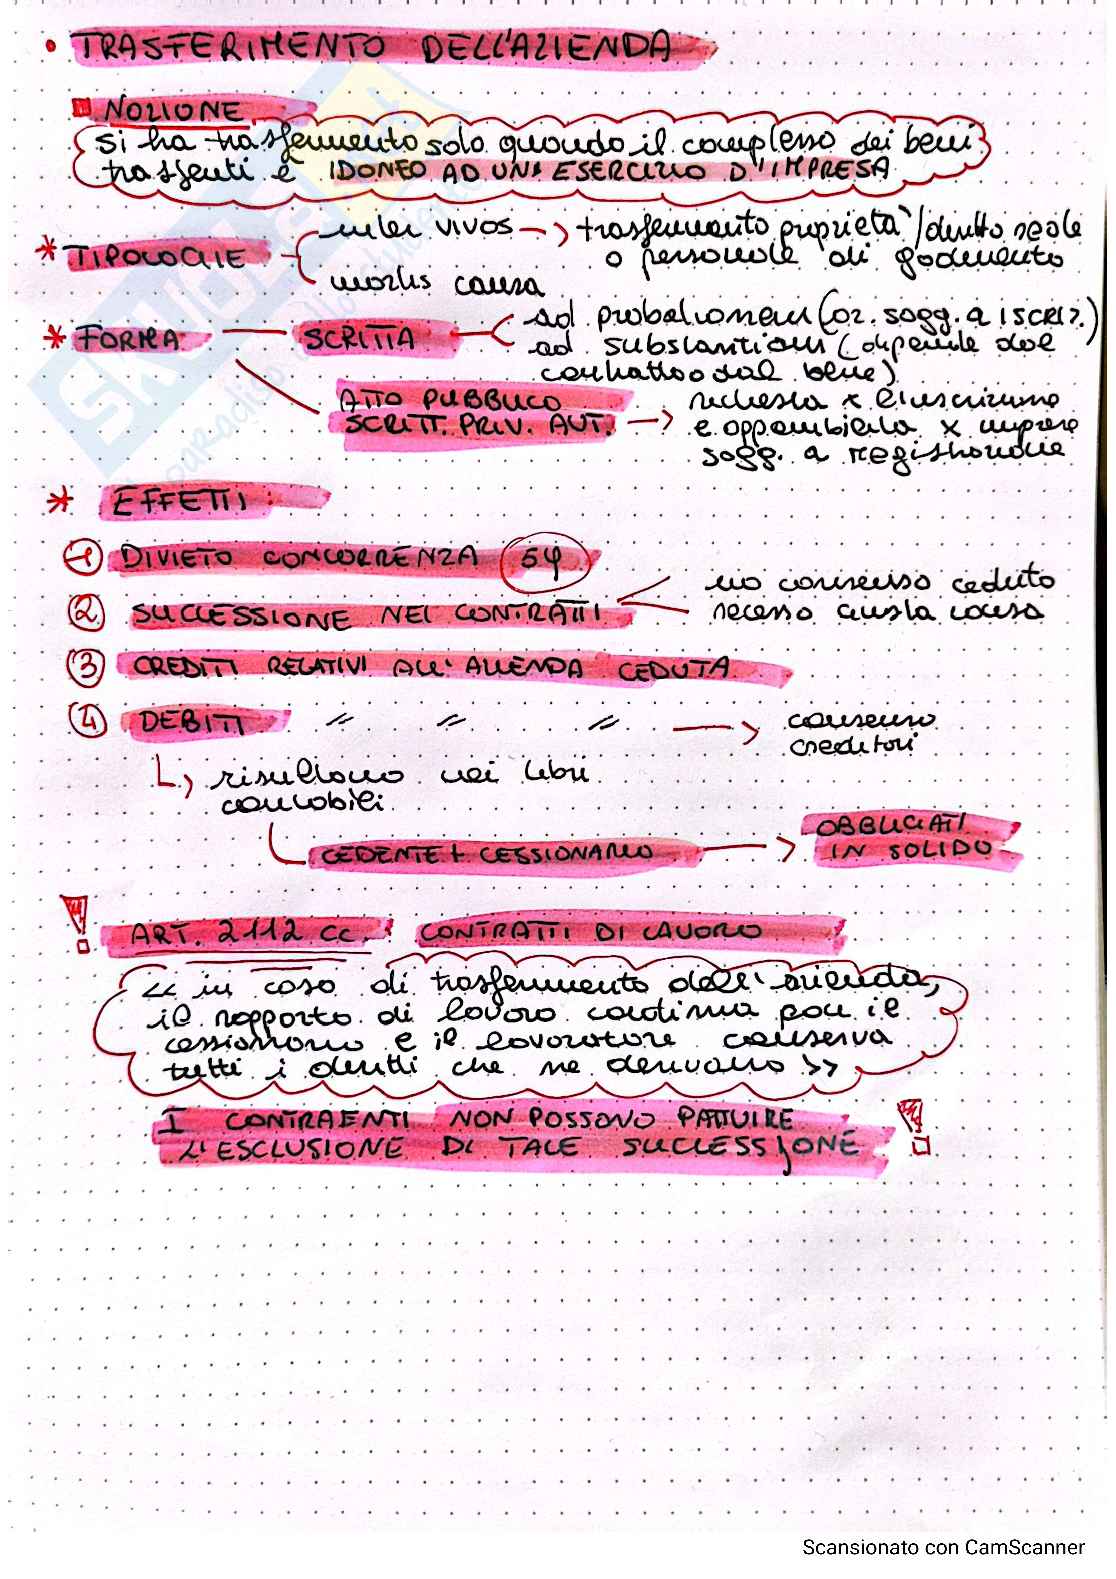 • TRASFERIMENTO DELL'AZIENDA
NOZIONE
si ha trasferimento solo quando il complesso dei beni
trasferiti è IDONEO AD UN'ESERCIZIO D'IMPRESA
* TIPOLOGIE
inter vivos → trasferimento proprietà/diritto reale
o personale di godimento
mortis causa
* FORMA
SCRITTA
ad probationem (x. sogg. a iscriz.)
ad substantiam (dipende dal
contratto o dal bene)
ATTO PUBBLICO
SCRITT. PRIV. AUT. →
richiesta x l'iscrizione
e opponibilità x imprese
sogg. a registrazione
* EFFETTI:
1 DIVIETO CONCORRENZA 5y
2 SUCCESSIONE NEI CONTRATTI
no consenso ceduto
recesso giusta causa
3 CREDITI RELATIVI ALL'AZIENDA CEDUTA
4 DEBITI // // // → consenso
creditori
↳ risultano nei libri
contabili
CEDENTE + CESSIONARIO →
OBBLIGATI
IN SOLIDO
! ART. 2112 cc. CONTRATTI DI LAVORO
<< in caso di trasferimento dell'azienda,
il rapporto di lavoro continua con il
cessionario e il lavoratore conserva
tutti i diritti che ne derivano >>
I CONTRAENTI NON POSSONO PATTUIRE
L'ESCLUSIONE DI TALE SUCCESSIONE !
SKUOLA
Scansionato con CamScanner